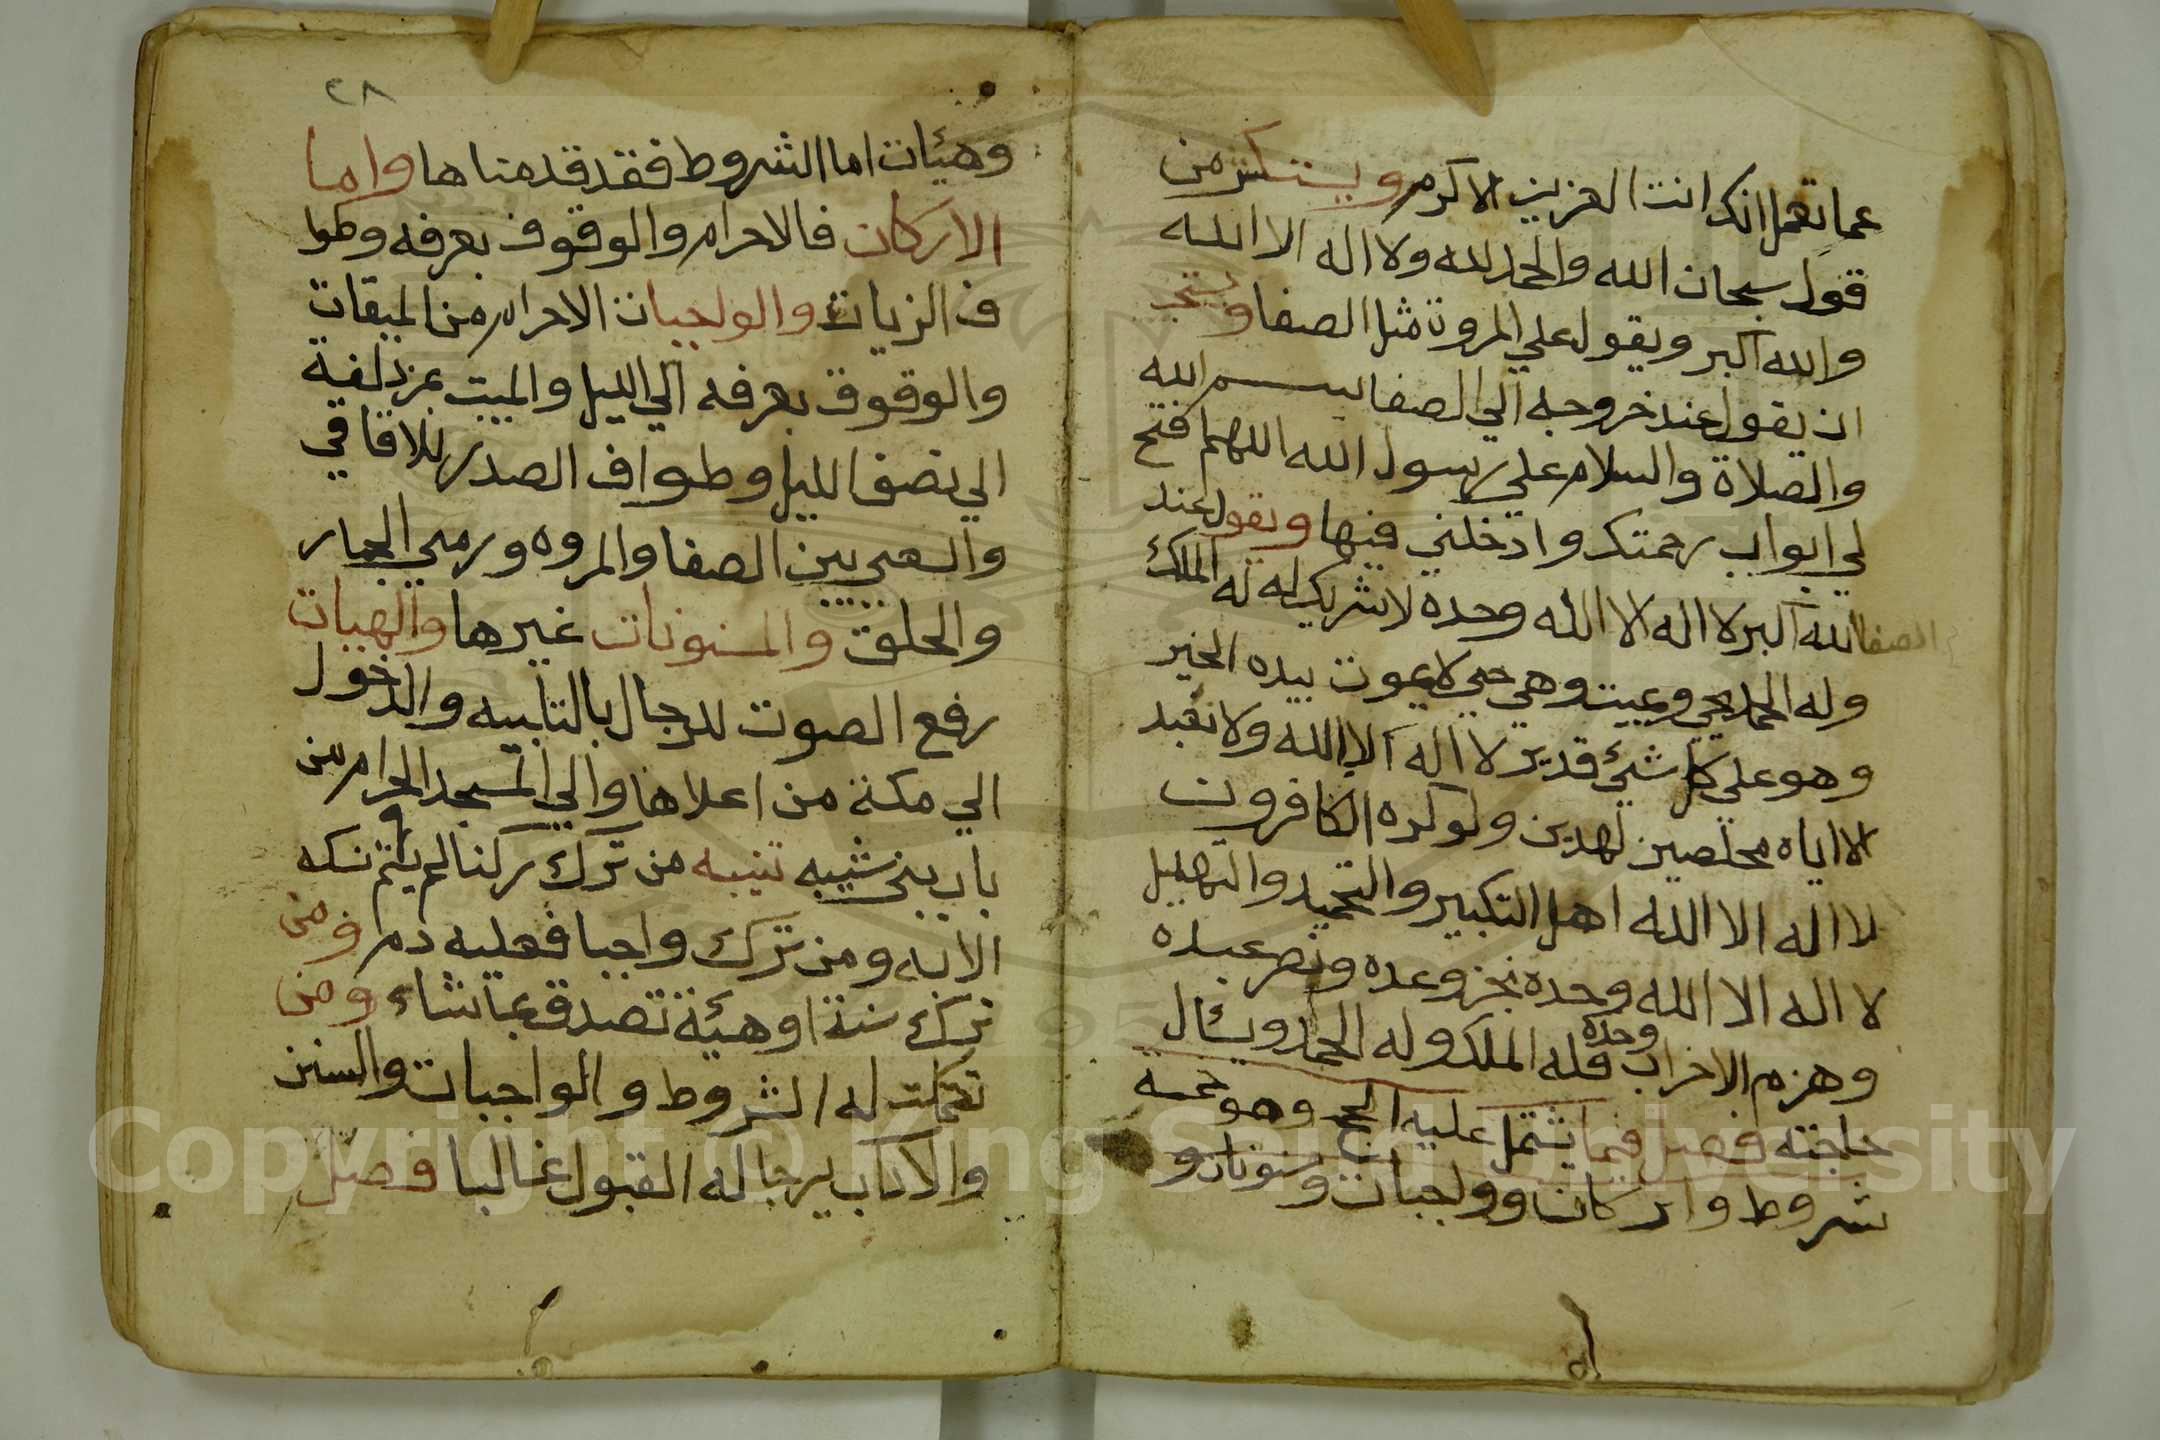 عما تعمل انك انت العزيز الاكرم ويستكثر من
قول سبحان الله والحمد لله ولا اله الا الله
والله اكبر ويقول علي المروة مثل الصفا ويستحب
ان يقول عند خروجه الي الصفا بسم الله
والصلاة والسلام علي رسول الله اللهم فتح
لي ابواب رحمتك وادخلني فيها ويقول عند
الصفا الله اكبر لا اله الا الله وحده لا شريك له له الملك
وله الحمد يحي ويميت وهي حي لا يموت بيده الخير
وهو علي كل شيئ قدير لا اله الا الله ولا نعبد
الا اياه مخلصين لهدين ولو كره الكافرون
لا اله الا الله اهل التكبير والتحميد والتهليل
لا اله الا الله وحده نجز وعده ونصر عبده
وهزم الاخراب وحده فله الملك وله الحمد ويسئال
حاجته فصل فيما يشتمل عليه الحج وهو خمسه
شروط واركان وواجبات ومسنونات و
٢٨
وهيئات اما الشروط فقد قدمناها واما
الاركان فالاحرام والوقوف بعرفه وطوا
ف الزيات والواجبات الاحرام من الميقات
والوقوف بعرفه الي الليل والمبيت بمزدلفة
الي نصف الليل وطواف الصدر للافاقي
والسعي بين الصفا والمروه ورمي الجمار
والحلق والمسنونات غيرها والهيات
رفع الصوت للرجال بالتلبيه والدخول
الي مكة من اعلاها والي المسجد الحرام من
باب بني شيبه تنبيه من ترك ركنا لم يتم نسكه
الا به ومن ترك واجبا فعليه دم ومن
ترك سنة او هيئة تصدق بما شاء ومن
تكملت له الشروط والواجبات والسنن
والاداب يرجا له القبول غالبا فصل
Copyright © King Saud University